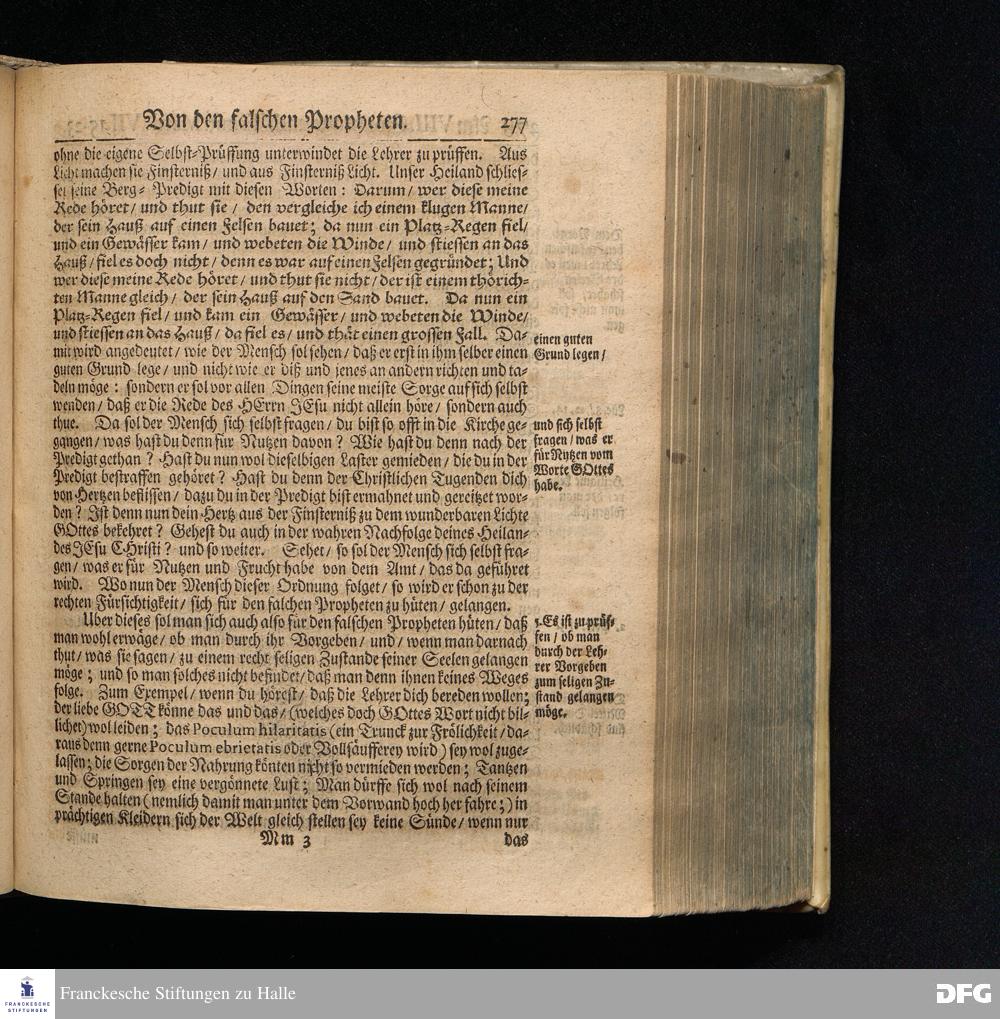 Von den falschen Propheten. 277
ohne die eigene Selbst-Prüffung unterwindet die Lehrer zu prüffen. Aus
Licht machen sie Finsterniß/ und aus Finsterniß Licht. Unser Heiland schlies-
set seine Berg-Predigt mit diesen Worten: Darum/ wer diese meine
Rede höret/ und thut sie/ den vergleiche ich einem klugen Manne/
der sein Hauß auf einen Felsen bauet; da nun ein Platz-Regen fiel/
und ein Gewässer kam/ und webeten die Winde/ und stiessen an das
Hauß/ fiel es doch nicht/ denn es war auf einen Felsen gegründet; Und
wer diese meine Rede höret/ und thut sie nicht/ der ist einem thörich-
ten Manne gleich/ der sein Hauß auf den Sand bauet. Da nun ein
Platz-Regen fiel/ und kam ein Gewässer/ und webeten die Winde/
und stiessen an das Hauß/ da fiel es/ und thät einen grossen Fall. Da-
mit wird angedeutet/ wie der Mensch sol sehen/ daß er erst in ihm selber einen
guten Grund lege/ und nicht wie er diß und jenes an andern richten und ta-
deln möge: sondern er sol vor allen Dingen seine meiste Sorge auf sich selbst
wenden/ daß er die Rede des HErrn JEsu nicht allein höre/ sondern auch
thue. Da sol der Mensch sich selbst fragen/ du bist so offt in die Kirche ge-
gangen/ was hast du denn für Nutzen davon? Wie hast du denn nach der
Predigt gethan? Hast du nun wol dieselbigen Laster gemieden/ die du in der
Predigt bestraffen gehöret? Hast du denn der Christlichen Tugenden dich
von Hertzen beflissen/ dazu du in der Predigt bist ermahnet und gereitzet wor-
den? Ist denn nun dein Hertz aus der Finsterniß zu dem wunderbaren Lichte
GOttes bekehret? Gehest du auch in der wahren Nachfolge deines Heilan-
des JEsu CHristi? und so weiter. Sehet/ so sol der Mensch sich selbst fra-
gen/ was er für Nutzen und Frucht habe von dem Amt/ das da geführet
wird. Wo nun der Mensch dieser Ordnung folget/ so wird er schon zu der
rechten Fürsichtigkeit/ sich für den falchen Propheten zu hüten/ gelangen.
Uber dieses sol man sich auch also für den falschen Propheten hüten/ daß
man wohl erwäge/ ob man durch ihr Vorgeben/ und/ wenn man darnach
thut/ was sie sagen/ zu einem recht seligen Zustande seiner Seelen gelangen
möge; und so man solches nicht befindet/ daß man denn ihnen keines Weges
folge. Zum Exempel/ wenn du hörest/ daß die Lehrer dich bereden wollen;
der liebe GOTT könne das und das/ (welches doch GOttes Wort nicht bil-
lichet) wol leiden; das Poculum hilaritatis (ein Trunck zur Frölichkeit/ da-
raus denn gerne Poculum ebrietatis oder Vollsäufferey wird) sey wol zuge-
lassen; die Sorgen der Nahrung könten nicht so vermieden werden; Tantzen
und Springen sey eine vergönnete Lust; Man dürffe sich wol nach seinem
Stande halten (nemlich damit man unter dem Vorwand hoch her fahre;) in
prächtigen Kleidern sich der Welt gleich stellen sey keine Sünde/ wenn nur
Mm 3 das
einen guten
Grund legen/
und sich selbst
fragen/ was er
für Nutzen vom
Worte GOttes
habe.
5. Es ist zu prüf-
fen/ ob man
durch der Leh-
rer Vorgeben
zum seligen Zu-
stand gelangen
möge.
FRANCKESCHE
STIFTUNGEN
Franckesche Stiftungen zu Halle
DFG